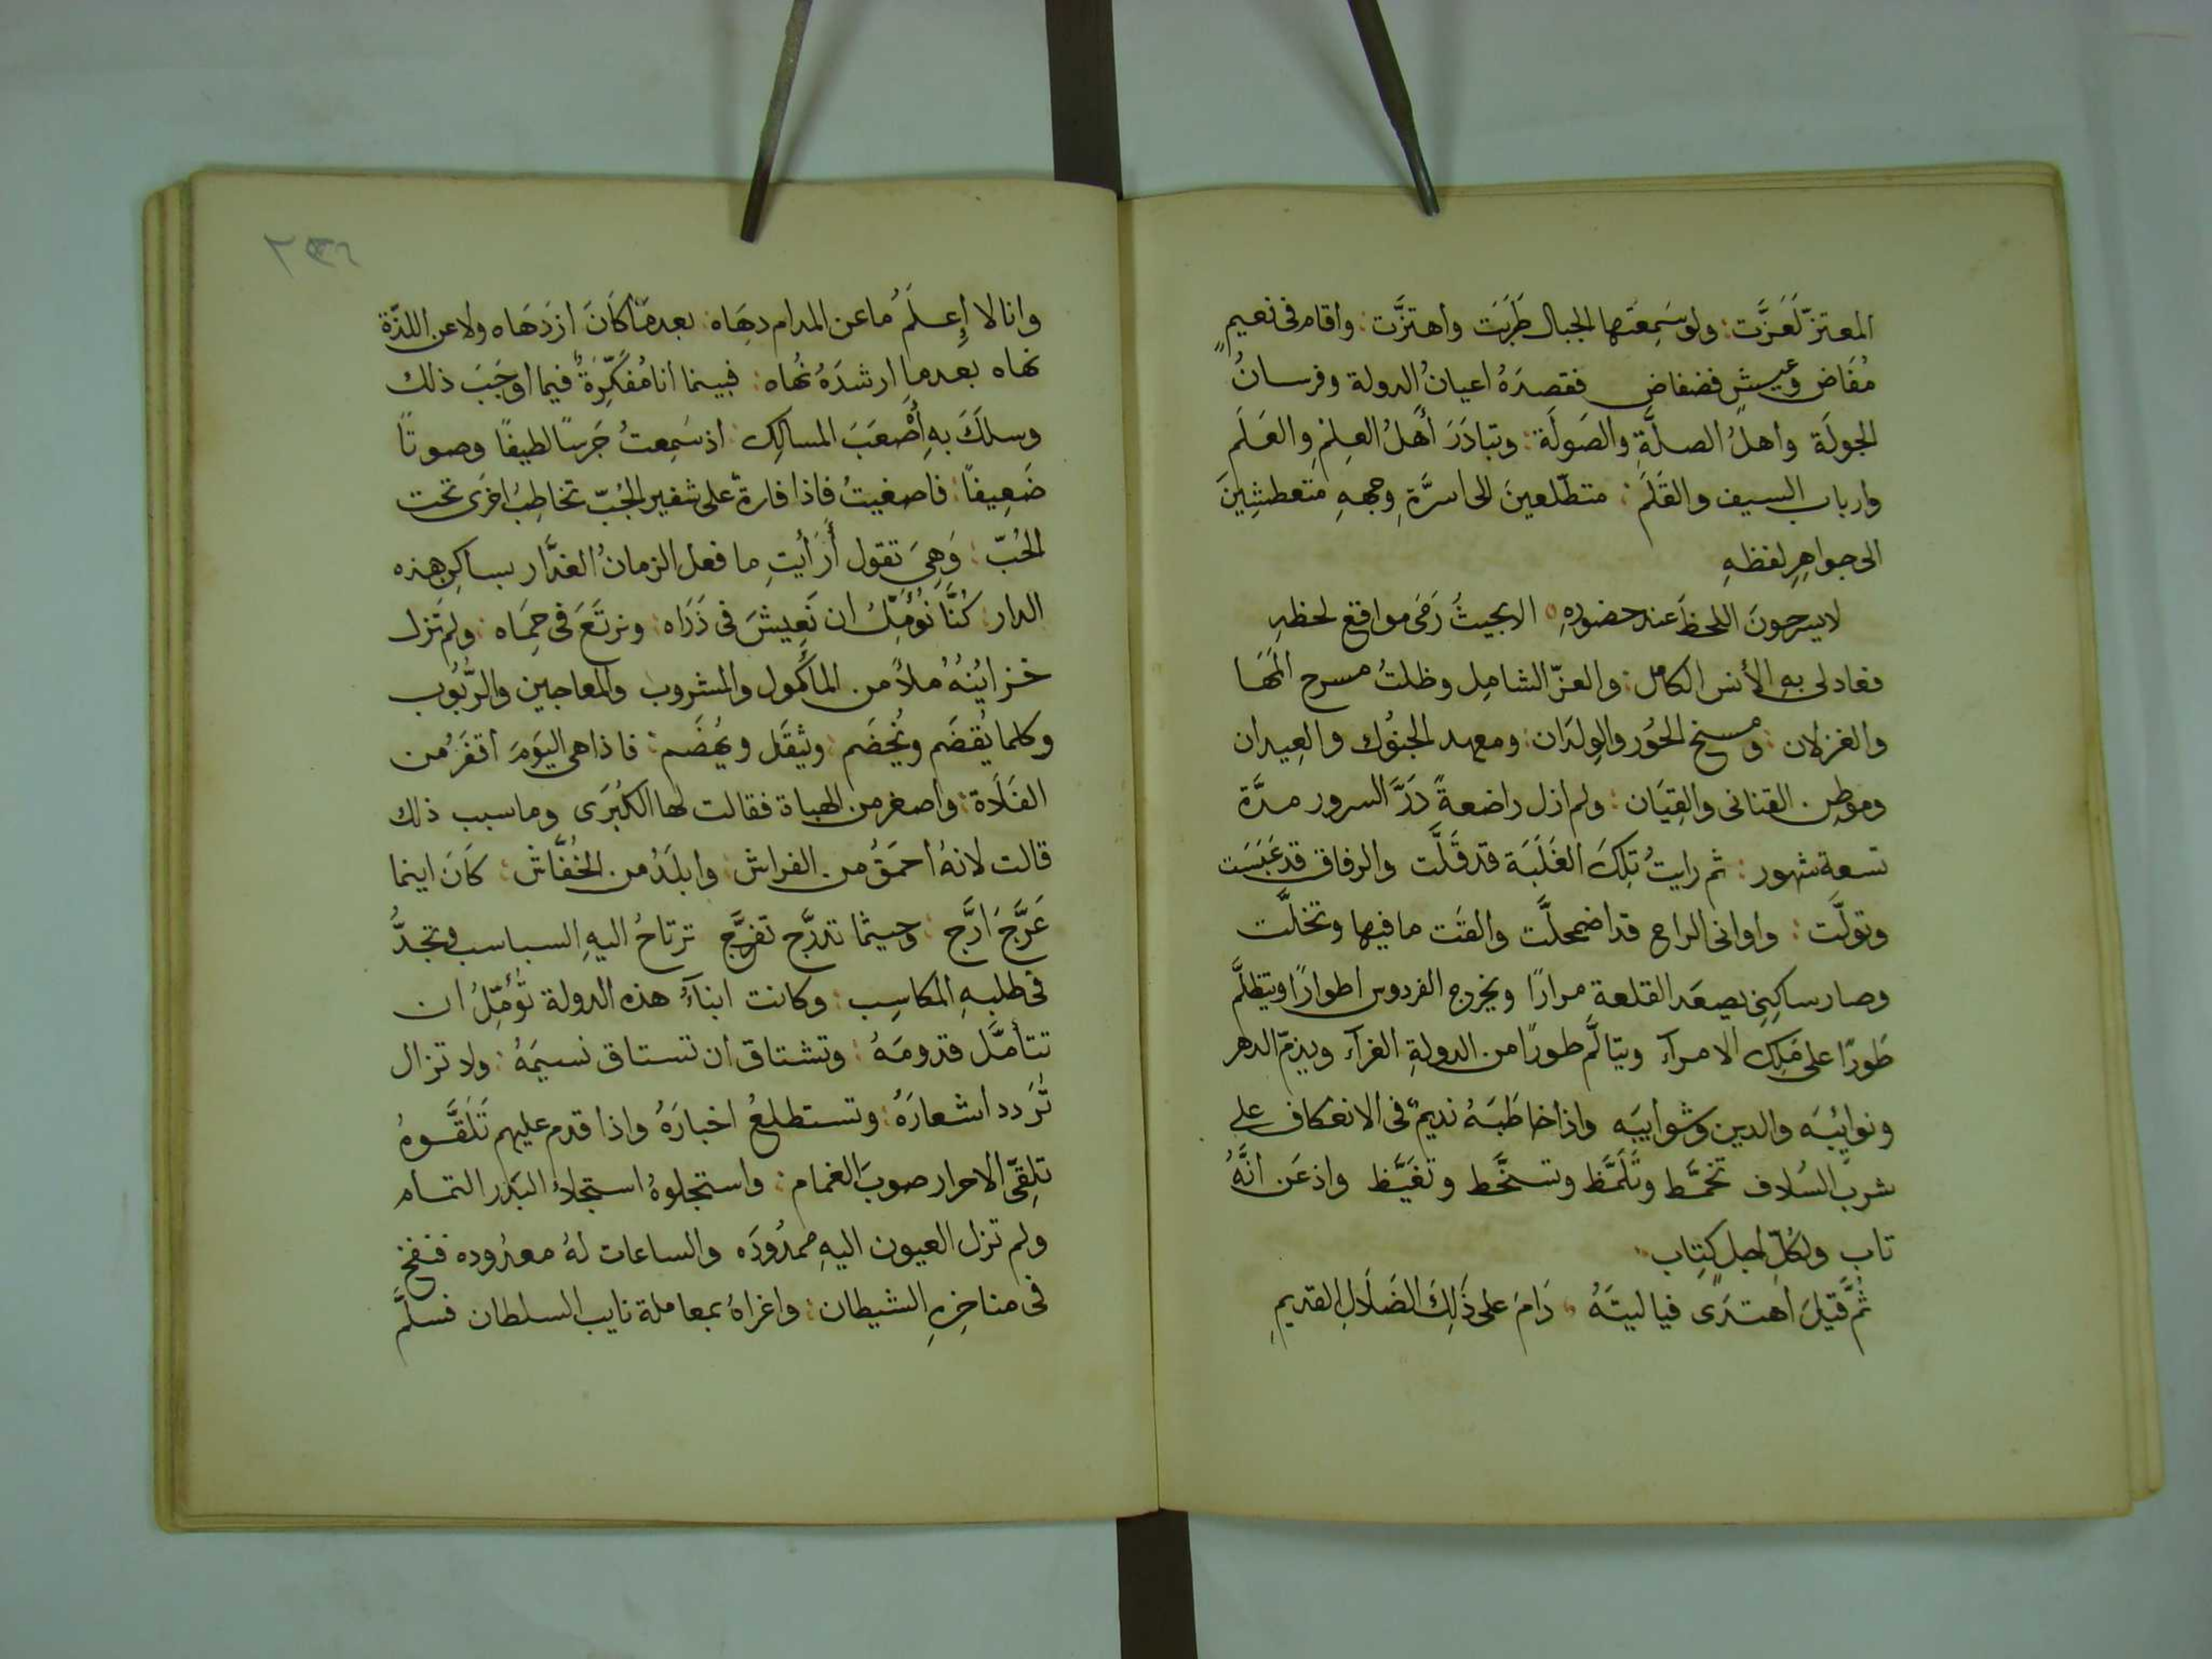 المعتزّ لَعَزَّت: ولو سَمِعَتها الجبال طَرِبَت واهتزَّت: واقام فى نعيمٍ
مُفَاض وعيشٍ فضفاض فقصدَهُ اعيانُ الدولة وفرسانُ
الجولَة واهلُ الصلَّةِ والصَولَة: وتبادَرَ أَهلُ العِلمِ والعَلَم
وارباب السيف والقَلَم: متطّلعينَ الى اسرَّةِ وجههِ متعطشِينَ
الى جواهِرِ لفظهِ
لا يسرحونَ اللحظَ عند حضورهِ الا بحيثُ رَمَى مواقع لحظهِ
فعاد لى بهِ الأنس الكامل: والعزّ الشامِل وظلتُ مسرح المَهَا
والغزلان: ومسنح الحُور والوِلدَان: ومعهد الجنُوك والعِيدان
وموطِن القنانى والقِيَان: ولم ازل راضعةً دَرَّ السرور مدَّة
تسعة شهور: ثم رايتُ تِلكَ الغَلَبَة قد قَلَّت والرفاق قد عَبَسَت
وتولَّت: واوانى الراح قد اضمحلَّت والقَت ما فيها وتخلَّت
وصار ساكِنِى يصعَد القلعة مرارًا ويخرج الفردوس اطوارًا ويتظلَّم
طَورًا على مَلِك الامرآء ويتالَّم طورًا من الدولةِ الغرآء ويذمّ الدهر
ونوايُبَه والدين وشوايبَه واذا خاطَبَهُ نديمٌ فى الانعكاف على
شربِ السُلاف تخمَّط وتَلَمَّظ وتسخَّط وتغَيَّظ واذعَن انَّهُ
تاب ولكُلِّ اجل كِتاب
ثُمَّ قيلَ اهتدَى فيا ليتَهُ دَامَ على ذَلِكَ الضَلَالِ القديمِ
٢٣٦
وانا لا اعلَمُ ما عن المدام دهَاه: بعد مَا كَانَ ازدَهَاه ولا عن اللذّة
نهاه بعد ما ارشدَهُ نُهاه: فبينما انا مُفَكِّرَةٌ فيما اوجَبَ ذلك
وسلكَ بهِ أَصْعَبَ المسالِك: اذ سَمِعتُ جَرسًا لطيفًا وصوتًا
ضَعِيفًا: فاصغيتُ فاذا فارةٌ على شفير الجُبّ تخاطِبُ اخرَى تحت
الحُبّ: وَهِىَ تقول أَرَأيتِ ما فعل الزمانُ الغدَّار بساكِن هذه
الدار: كُنَّا نُؤمِّلُ ان نَعِيشَ فى ذَرَاه: ونرتَعَ فى حِمَاه: ولم تَزل
خزايُنُهُ ملأً من المأكول والمشروب والمعاجين والرُّبُوب
وكلما يُقضَم ويُخضَم: ويثقَل ويُهضَم: فاذا هى اليَومَ اقفَرُ من
الفَلَاة: واصغر من الهباة فقالت لها الكُبرَى وما سبب ذلك
قالت لانهُ احمَقُ من الفراش: وابلَدُ من الخُفَّاش: كَانَ اينما
عَرَّجَ ارَّج: وحيثما تدرَّج تفرَّج ترتاحُ اليهِ السباسب وتجدُّ
فى طلبهِ المكاسِب: وكانت ابنآءُ هذه الدولة تُؤَمِّلُ ان
تتأمَّل قدومَهُ: وتشتاق ان تستاق نسيمَهُ: ولا تزال
تُرَدد اشعارَهُ: وتستطلعُ اخبارَهُ واذا قدم عليهم تَلَقَّوهُ
تلِقّى الاحرار صوبَ الغمام: واستجلوهُ استجلاءَ البَدر التمام
ولم تزل العيون اليهِ ممدُودَه والساعات لهُ معدُوده فنفخ
فى مناخِرهِ الشيطان: واغراهُ بمعاملة نايب السلطان فسلَّم